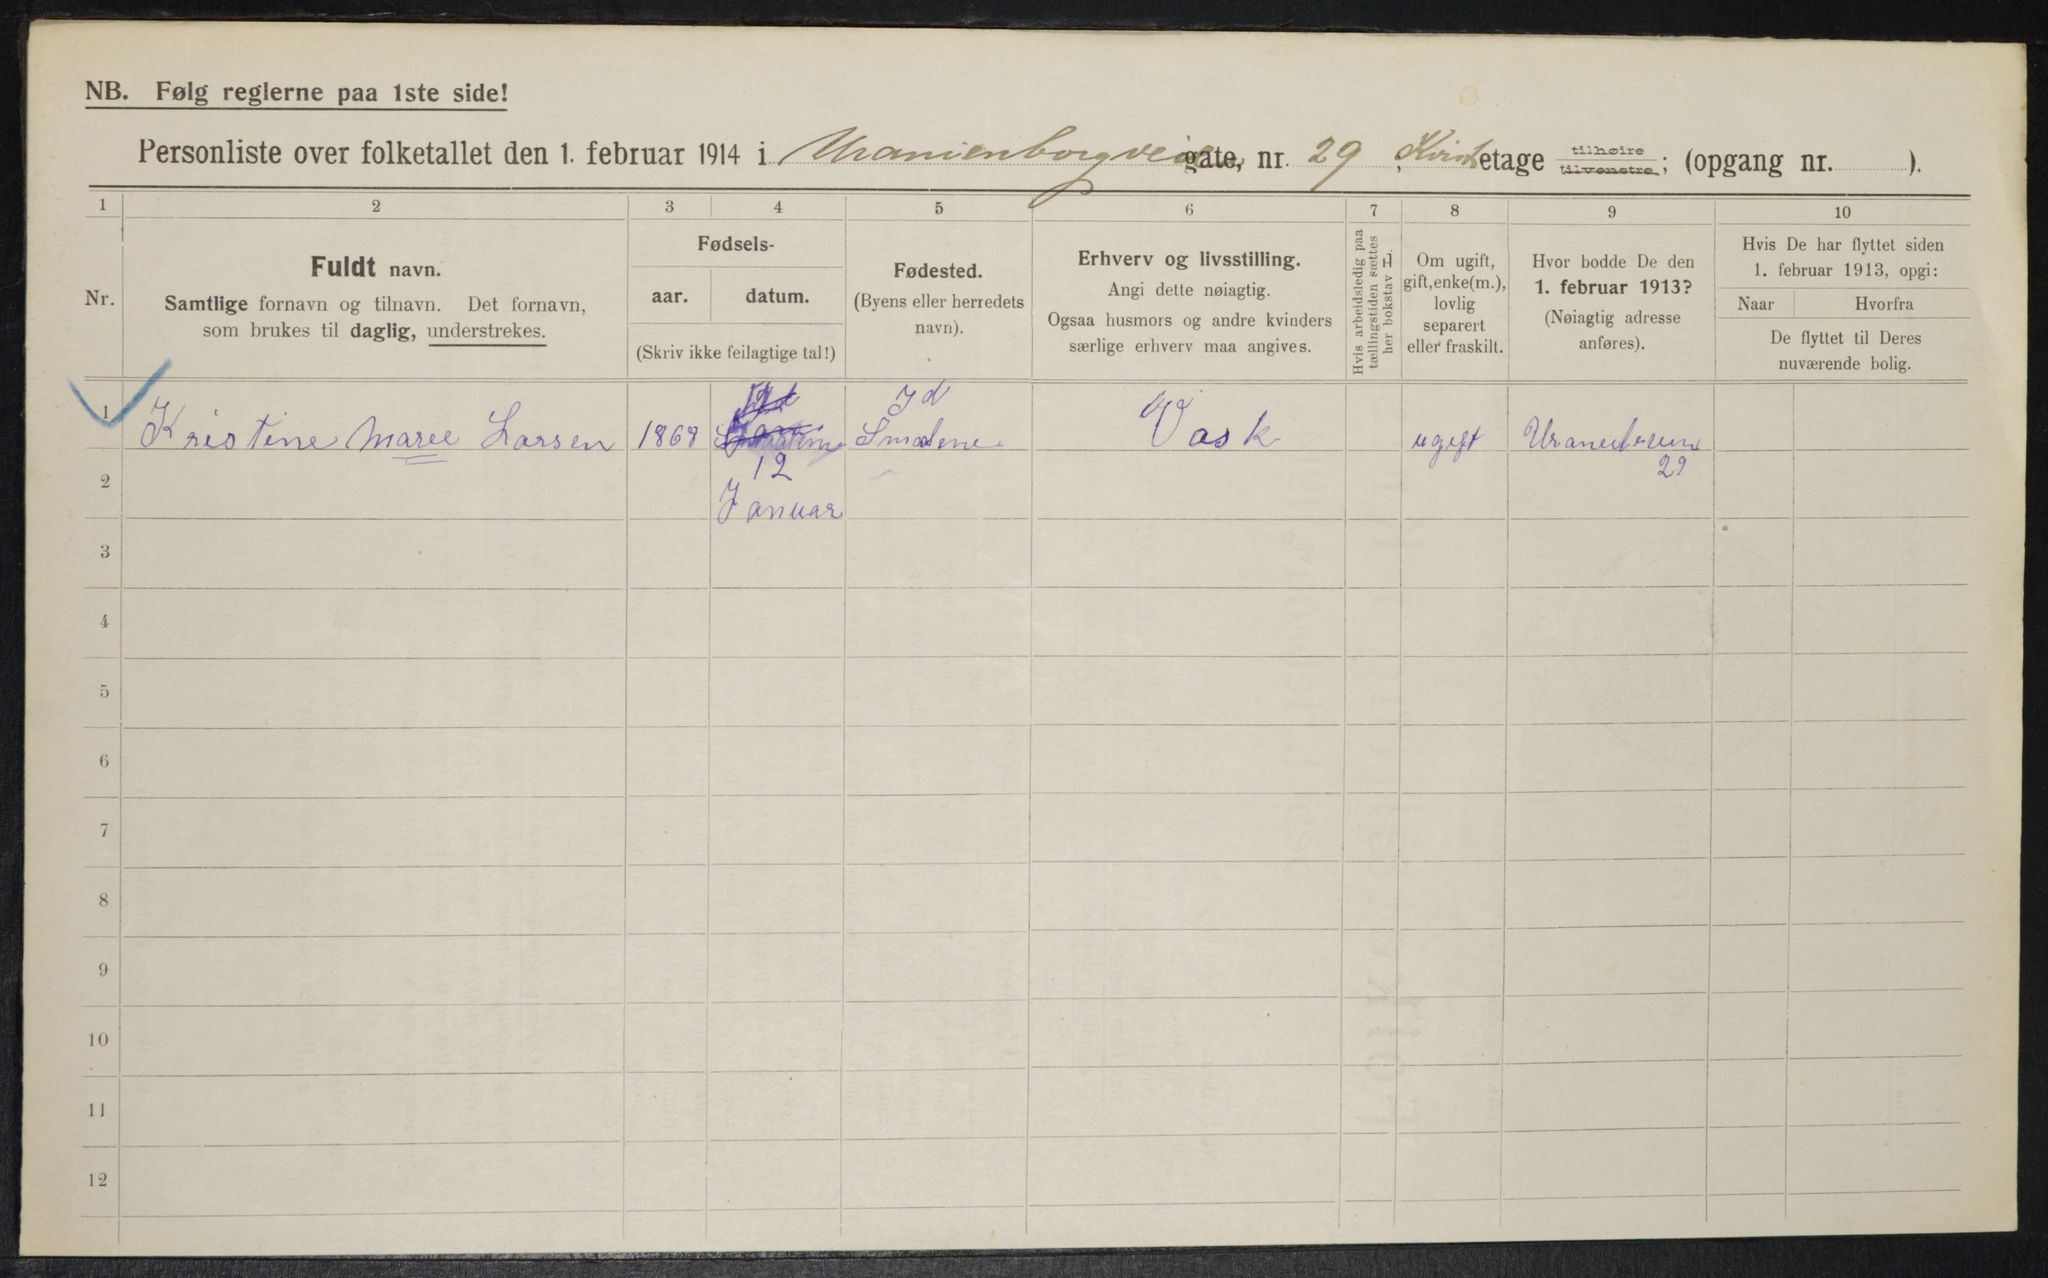 NB. Følg reglerne paa 1ste side!
Personliste over folketallet den 1. februar 1914 i Uranienborgveien gate, nr. 29, Kvist etage tilhøire tilvenstre; (opgang nr. ).
1 2 3 4 5 6 7 8 9 10
Nr.
Fuldt navn.
Samtlige fornavn og tilnavn. Det fornavn,
som brukes til daglig, understrekes.
Fødsels-
aar. datum.
(Skriv ikke feilagtige tal!)
Fødested.
(Byens eller herredets
navn).
Erhverv og livsstilling.
Angi dette nøiagtig.
Ogsaa husmors og andre kvinders
særlige erhverv maa angives.
Hvis arbeidsledig paa
tællingstiden sættes
her bokstav L
Om ugift,
gift, enke(m.),
lovlig
separert
eller fraskilt.
Hvor bodde De den
1. februar 1913?
(Nøiagtig adresse
anføres).
Hvis De har flyttet siden
1. februar 1913, opgi:
Naar Hvorfra
De flyttet til Deres
nuværende bolig.
Id
1 Kristine Maree Larsen 1868 Smalene Vask ugift
12 29
2 Januar
3
4
5
6
7
8
9
10
11
12